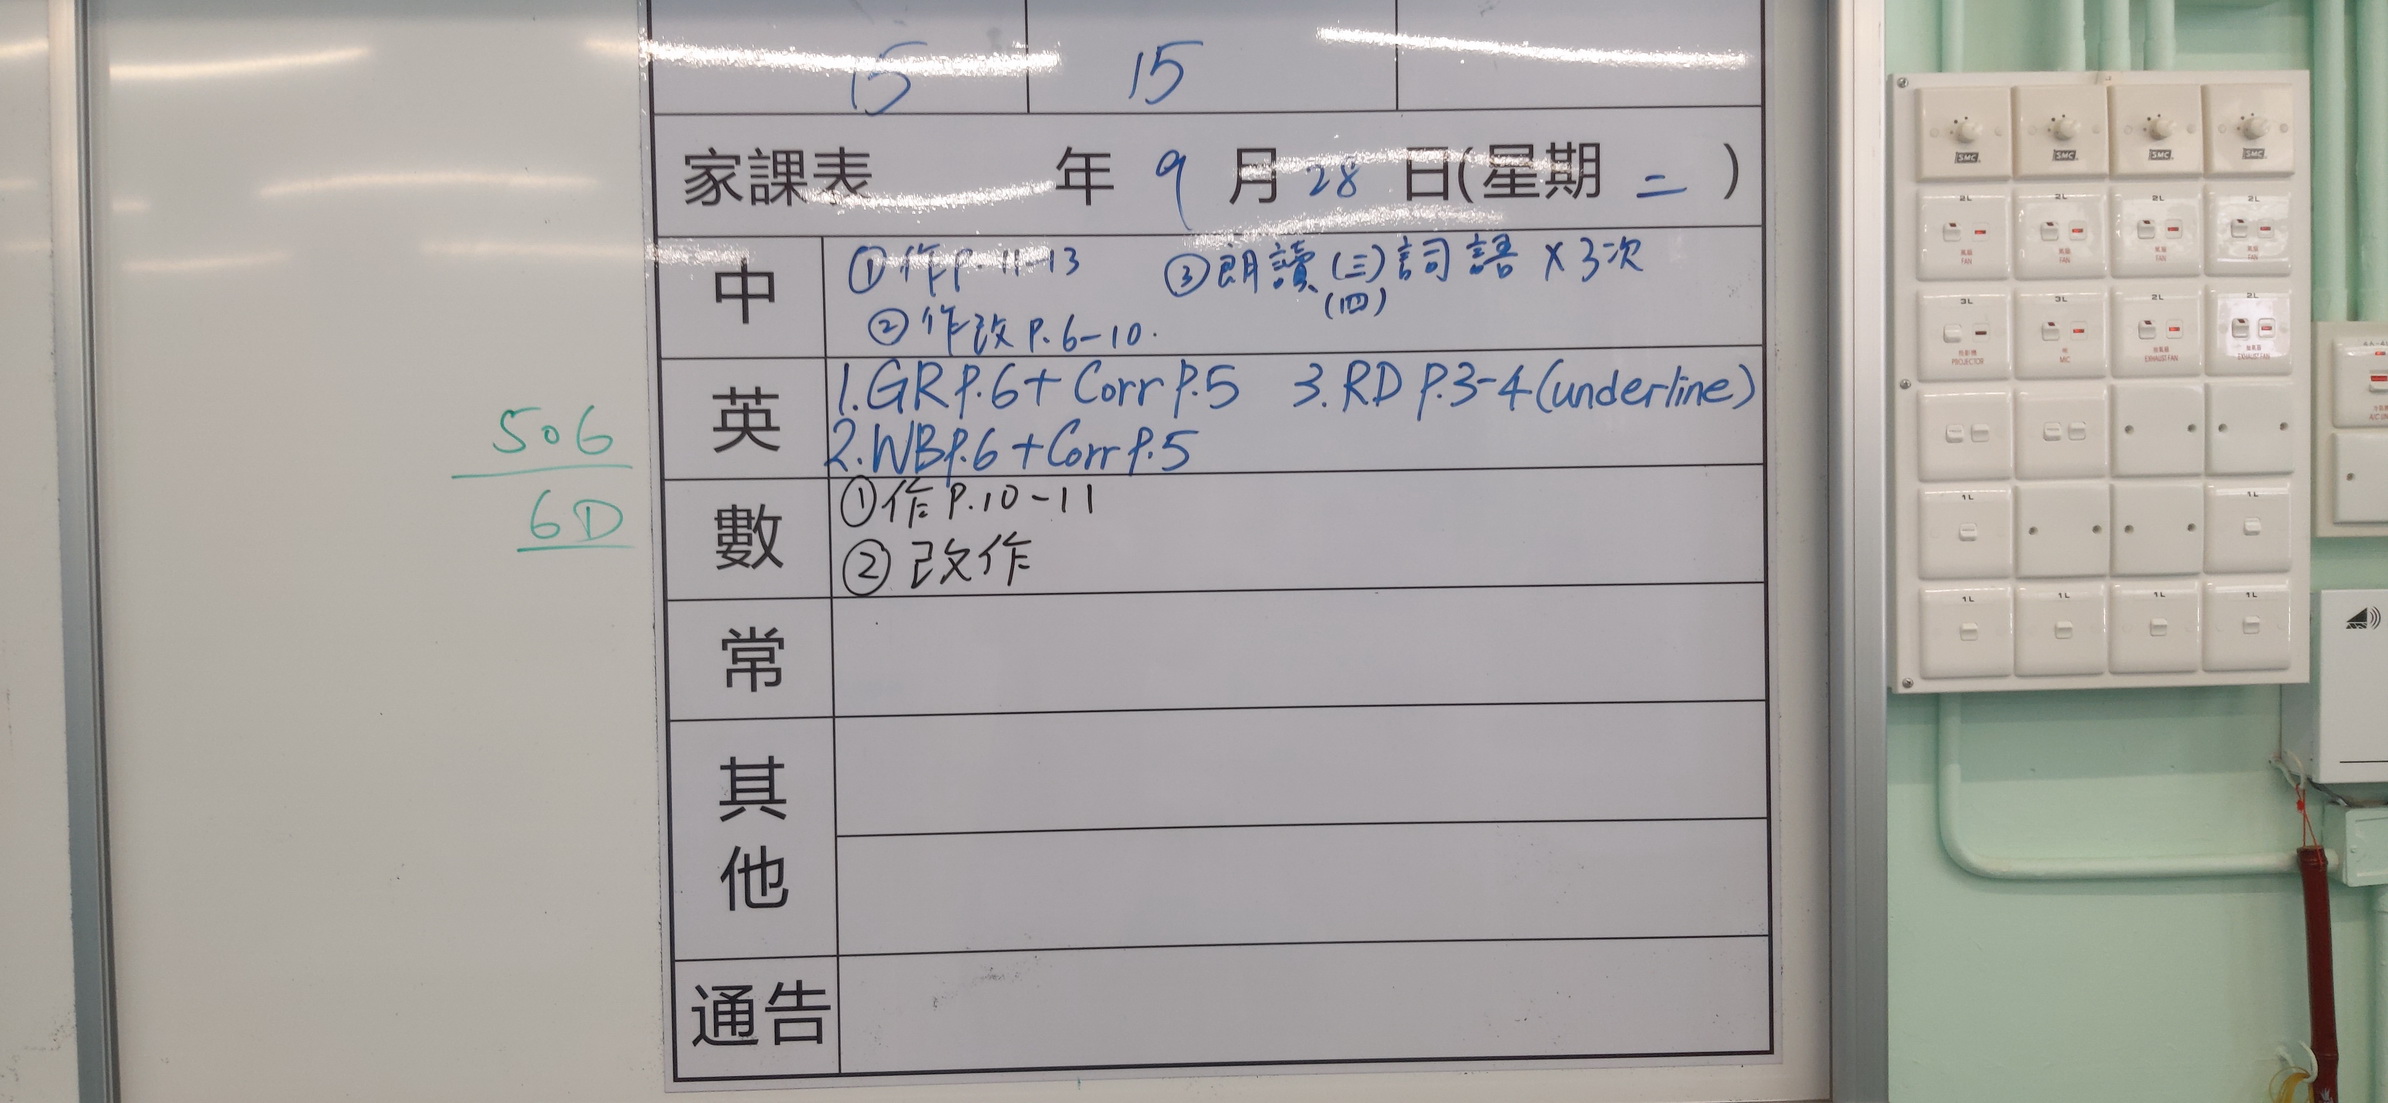 15 15
家課表 年 9 月 28 日(星期 二 )
中 ①作P.11-13 ③朗讀(三)詞語×3次
(四)
②作改P.6-10.
英 1.GR P.6+Corr P.5 3.RD P.3-4(underline)
2.WB P.6+Corr P.5
506
6D
數 ①作P.10-11
②改作
常
其
他
通告
SMC SMC SMC SMC
2L 2L 2L 2L
風扇 風扇 風扇 風扇
FAN FAN FAN FAN
3L 3L 2L 2L
PROJECTOR MIC EXHAUST FAN EXHAUST FAN
1L 1L
1L 1L 1L 1L